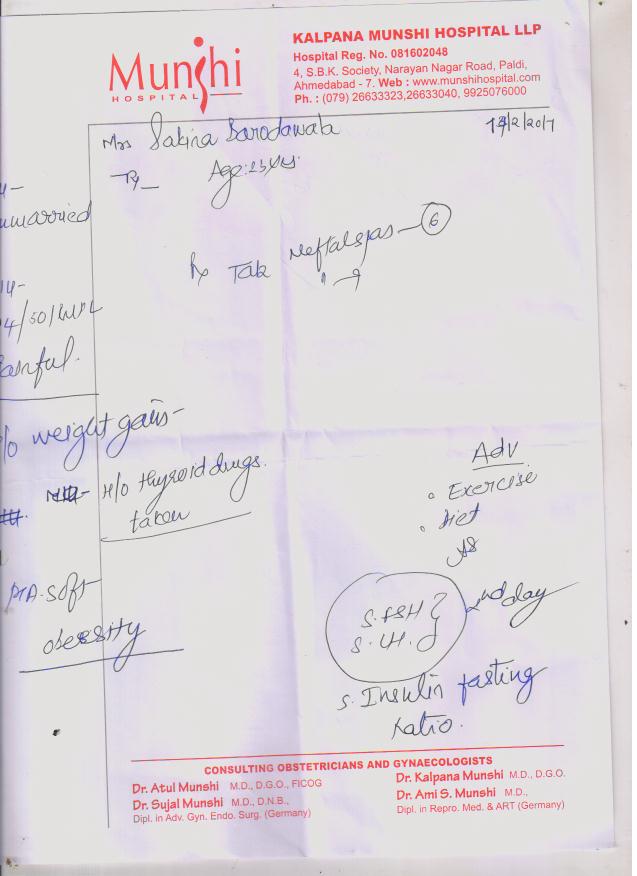 Munshi
HOSPITAL
KALPANA MUNSHI HOSPITAL LLP
Hospital Reg. No. 081602048
4, S.B.K. Society, Narayan Nagar Road, Paldi,
Ahmedabad - 7. Web : www.munshihospital.com
Ph. : (079) 26633323,26633040, 9925076000
Mrs Sakina Barodawala
14/2/2017
Age: 23 yrs.
unmarried
Rx Tab Neftalspas - 6
Painful.
c/o weight gain-
H/O thyroid drugs.
taken
P/A-soft
obessity
Adv
Exercise
Diet
S.FSH }
S.LH. } 2nd day
S. Insulin fasting
Ratio.
CONSULTING OBSTETRICIANS AND GYNAECOLOGISTS
Dr. Atul Munshi M.D., D.G.O., FICOG
Dr. Sujal Munshi M.D., D.N.B.,
Dipl. in Adv. Gyn. Endo. Surg. (Germany)
Dr. Kalpana Munshi M.D., D.G.O.
Dr. Ami S. Munshi M.D.,
Dipl. in Repro. Med. & ART (Germany)